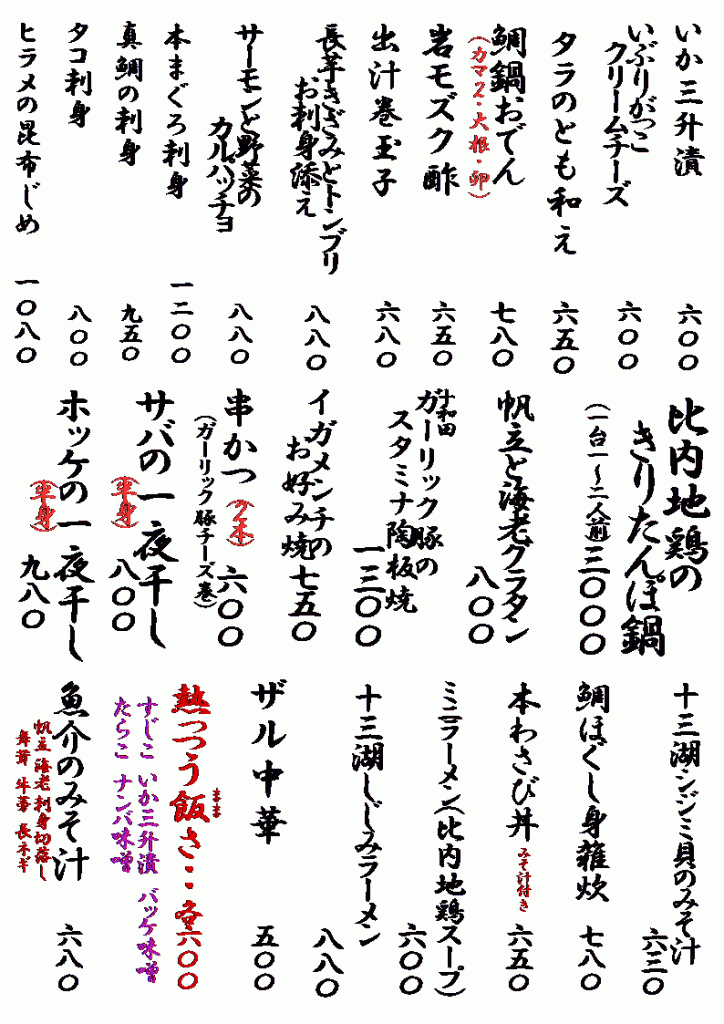 いか三升漬 六〇〇
いぶりがっこ
クリームチーズ 六〇〇
タラのとも和え 六五〇
鯛鍋おでん 七八〇
(カマ2・大根・卵)
岩モズク酢 六五〇
出汁巻玉子 六八〇
長芋きざみとトンブリ
お刺身添え 八八〇
サーモンと野菜の
カルパッチョ 八八〇
本まぐろ刺身 一二〇〇
真鯛の刺身 九五〇
タコ刺身 八〇〇
ヒラメの昆布じめ 一〇八〇
比内地鶏の
きりたんぽ鍋
(一台一~二人前) 三〇〇〇
帆立と海老グラタン 八〇〇
十和田
ガーリック豚の
スタミナ陶板焼 一三〇〇
イガメンチの
お好み焼 七五〇
串かつ (2本) 六〇〇
(ガーリック豚チーズ巻)
サバの一夜干し
(半身) 八〇〇
ホッケの一夜干し
(半身) 九八〇
十三湖シジミ貝のみそ汁 六三〇
鯛ほぐし身雑炊 七八〇
本わさび丼 みそ汁付き 六五〇
ミニラーメン(比内地鶏スープ) 六〇〇
十三湖しじみラーメン 八八〇
ザル中華 五〇〇
熱っつう飯さ・・各六〇〇
まま
すじこ いか三升漬 バッケ味噌
たらこ ナンバ味噌
魚介のみそ汁 六八〇
帆立 海老 刺身切落し
舞茸 牛蒡 長ネギ